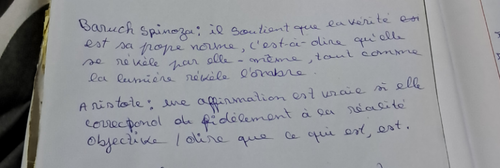 Baruch Spinoza : il soutient que la vérité en
est sa prope norme, c'est-à-dire qu'elle
se révèle par elle-même, tout comme
la lumière révèle l'ombre.
Aristote : une affirmation est vraie si elle
correspond de fidèlement à la réalité
objective / dire que ce qui est, est.